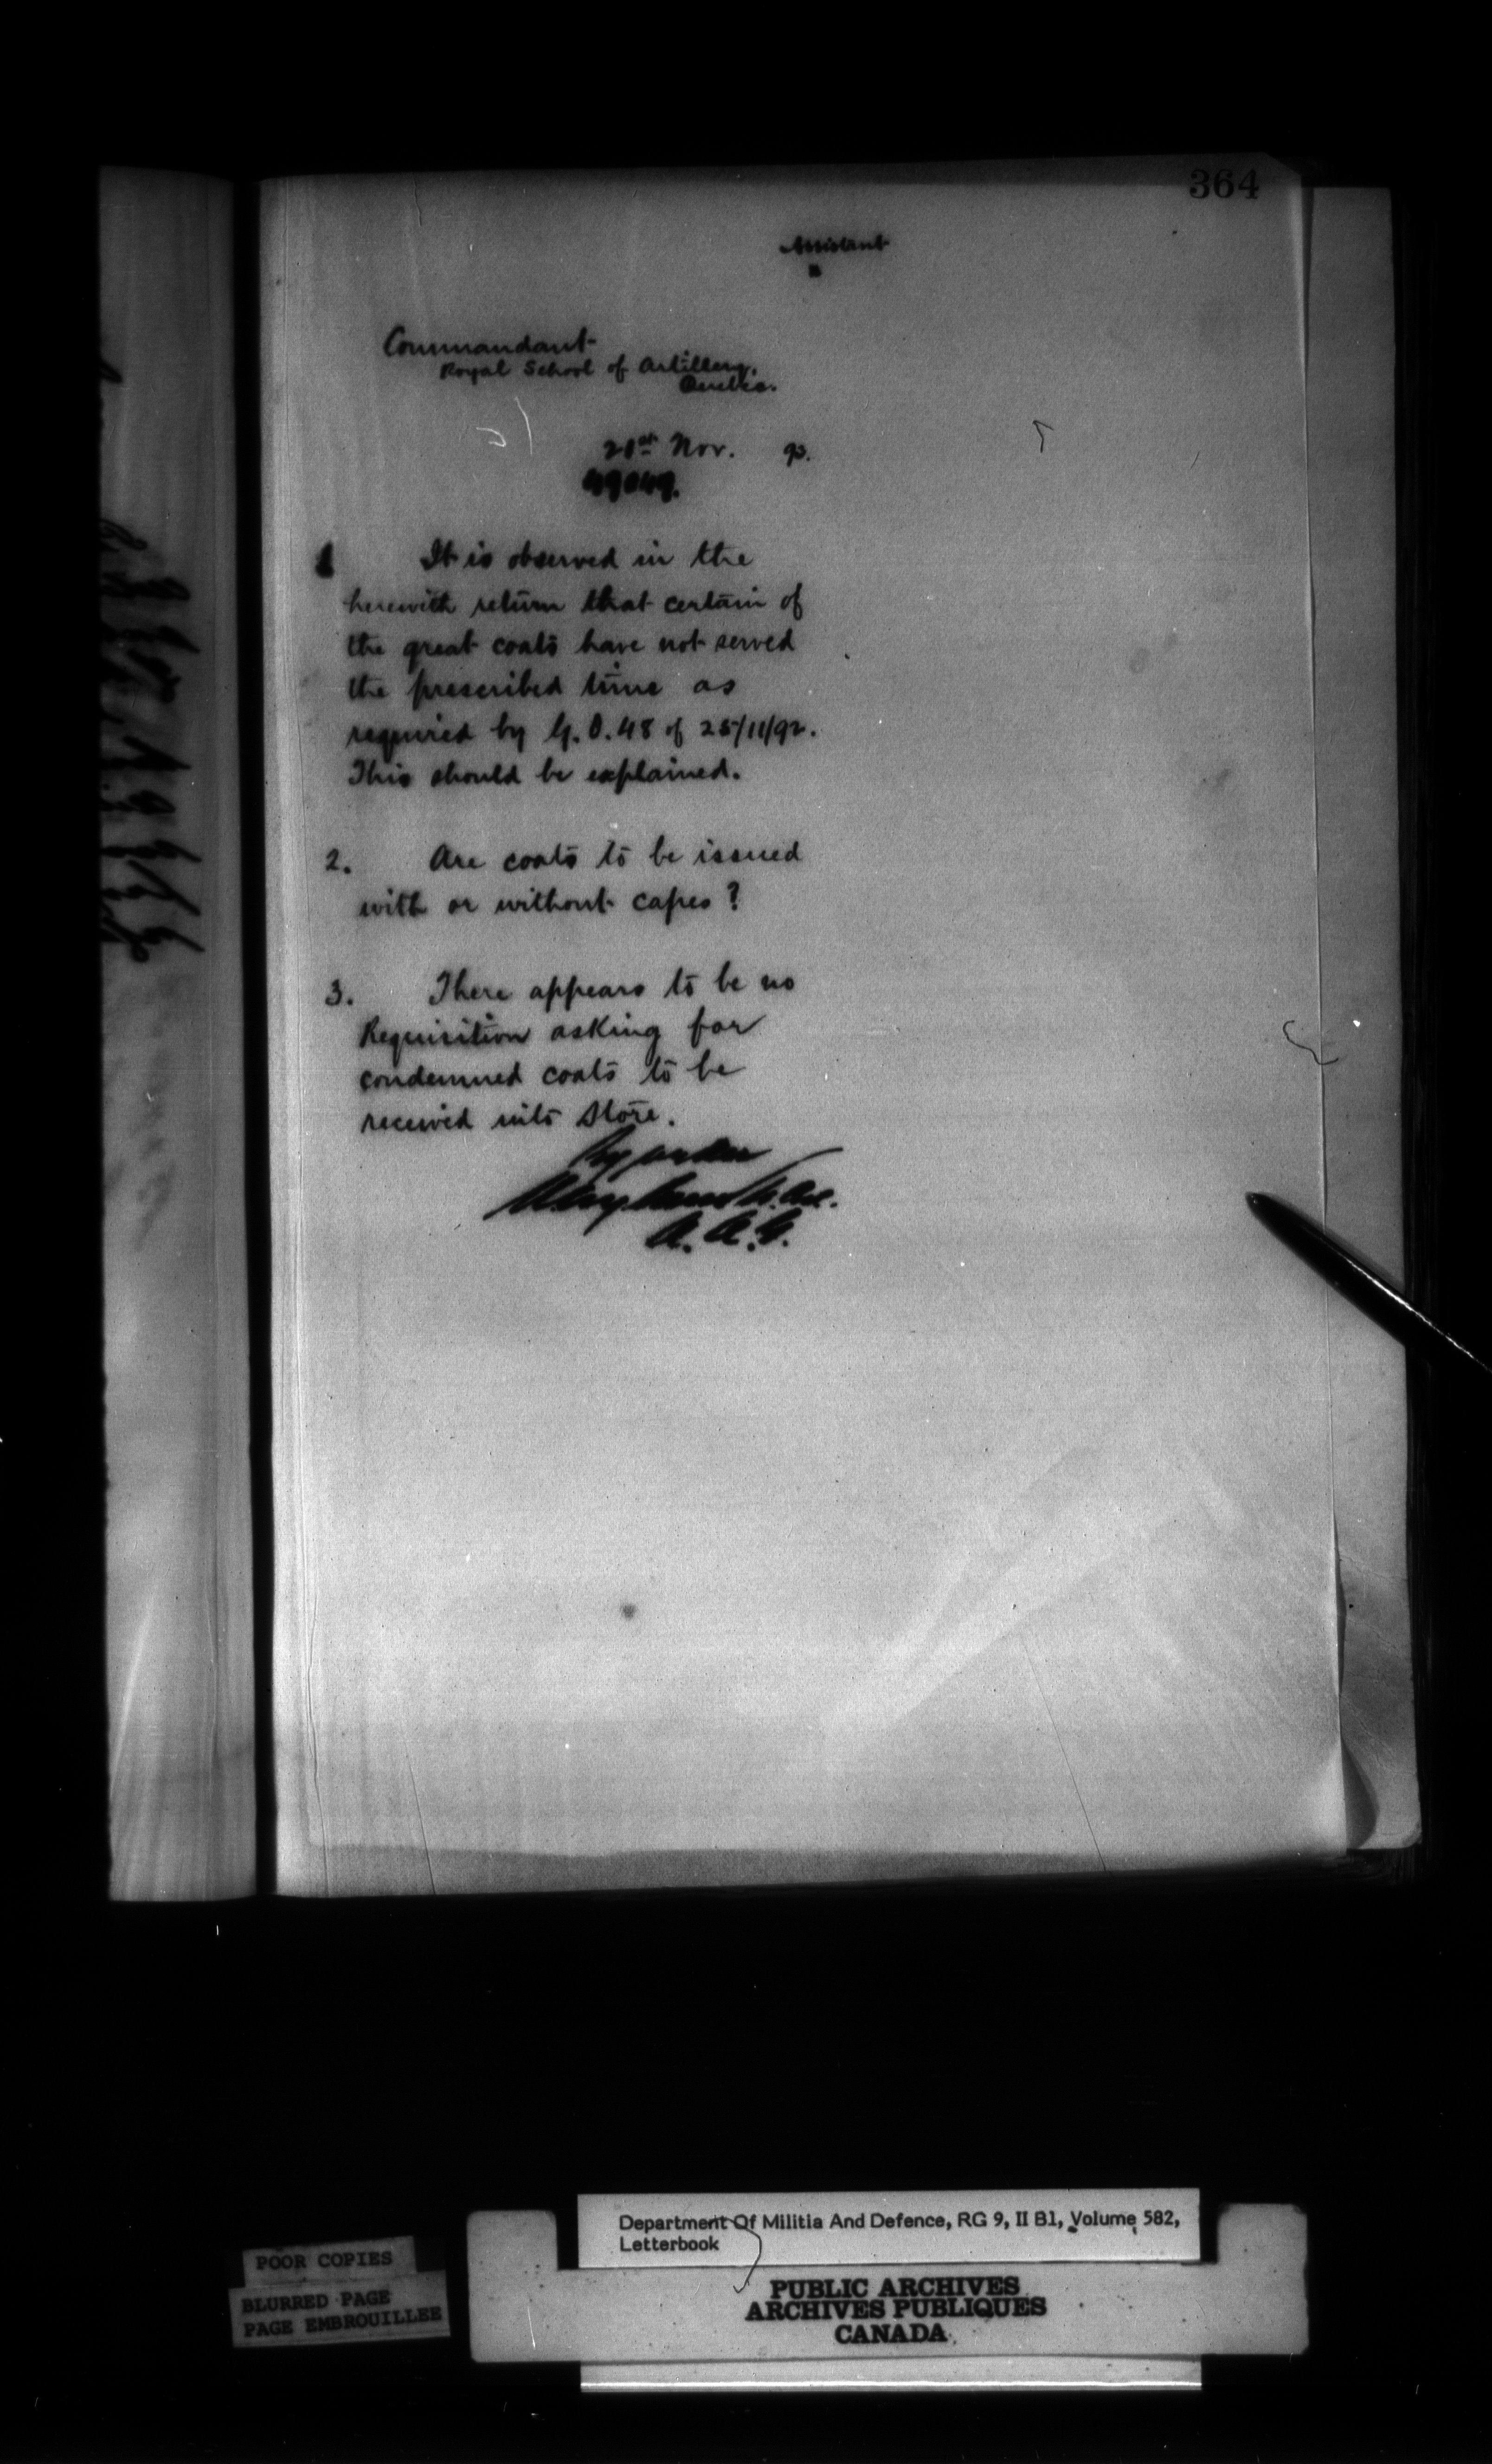 364
Assistant
"
Commandant
Royal School of Artillery,
Quebec.
21st Nov. 93.
49049.
1 It is observed in the
herewith return that certain of
the great coats have not served
the prescribed time as
required by G.O. 48 of 25/11/92.
This should be explained.
2. Are coats to be issued
with or without capes?
3. There appears to be no
Requisition asking for
condemned coats to be
received into Store.
By order
A. A. G.
Department Of Militia And Defence, RG 9, II B1, Volume 582,
Letterbook
POOR COPIES
BLURRED PAGE
PAGE EMBROUILLEE
PUBLIC ARCHIVES
ARCHIVES PUBLIQUES
CANADA